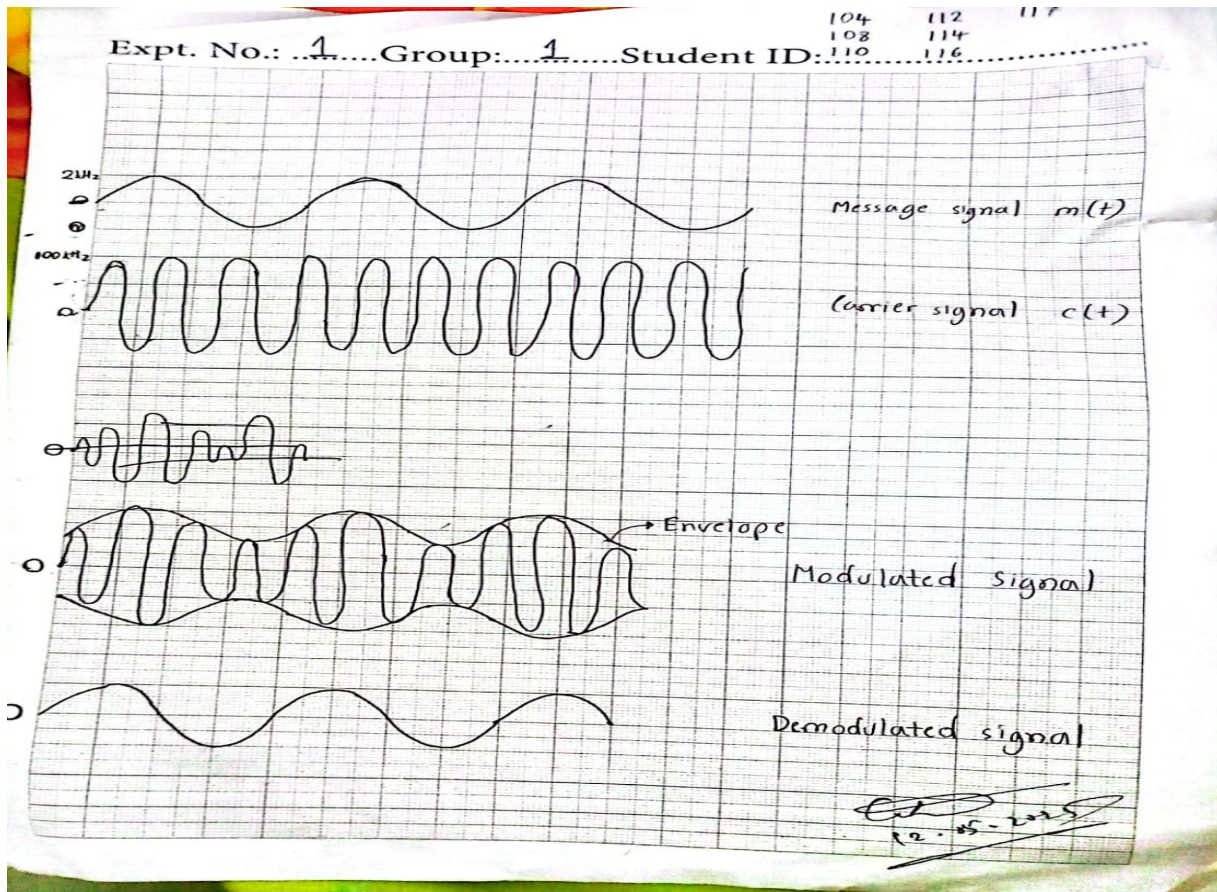 104 112
108 114
Expt. No.: 1 Group: 1 Student ID: 110 116
2kHz
Message signal m(t)
0
100kHz
Carrier signal c(t)
0
0
Envelope
0
Modulated signal
Demodulated signal
12-05-2025